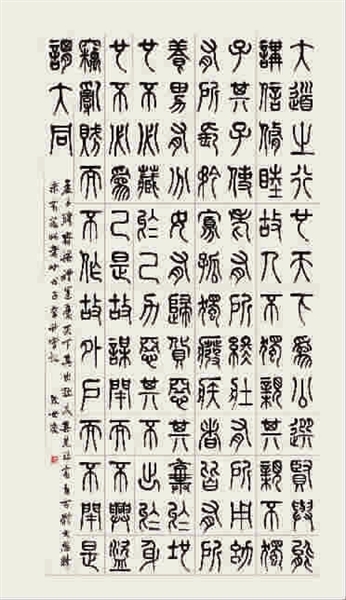 大道之行也天下為公選賢與能
講信脩睦故人不獨親其親不獨
子其子使老有所終壯有所用幼
有所長矜寡孤獨廢疾者皆有所
養男有分女有歸貨惡其棄於地
也不必藏於己力惡其不出於身
也不必為己是故謀閉而不興盜
竊亂賊而不作故外戶而不閉是
謂大同